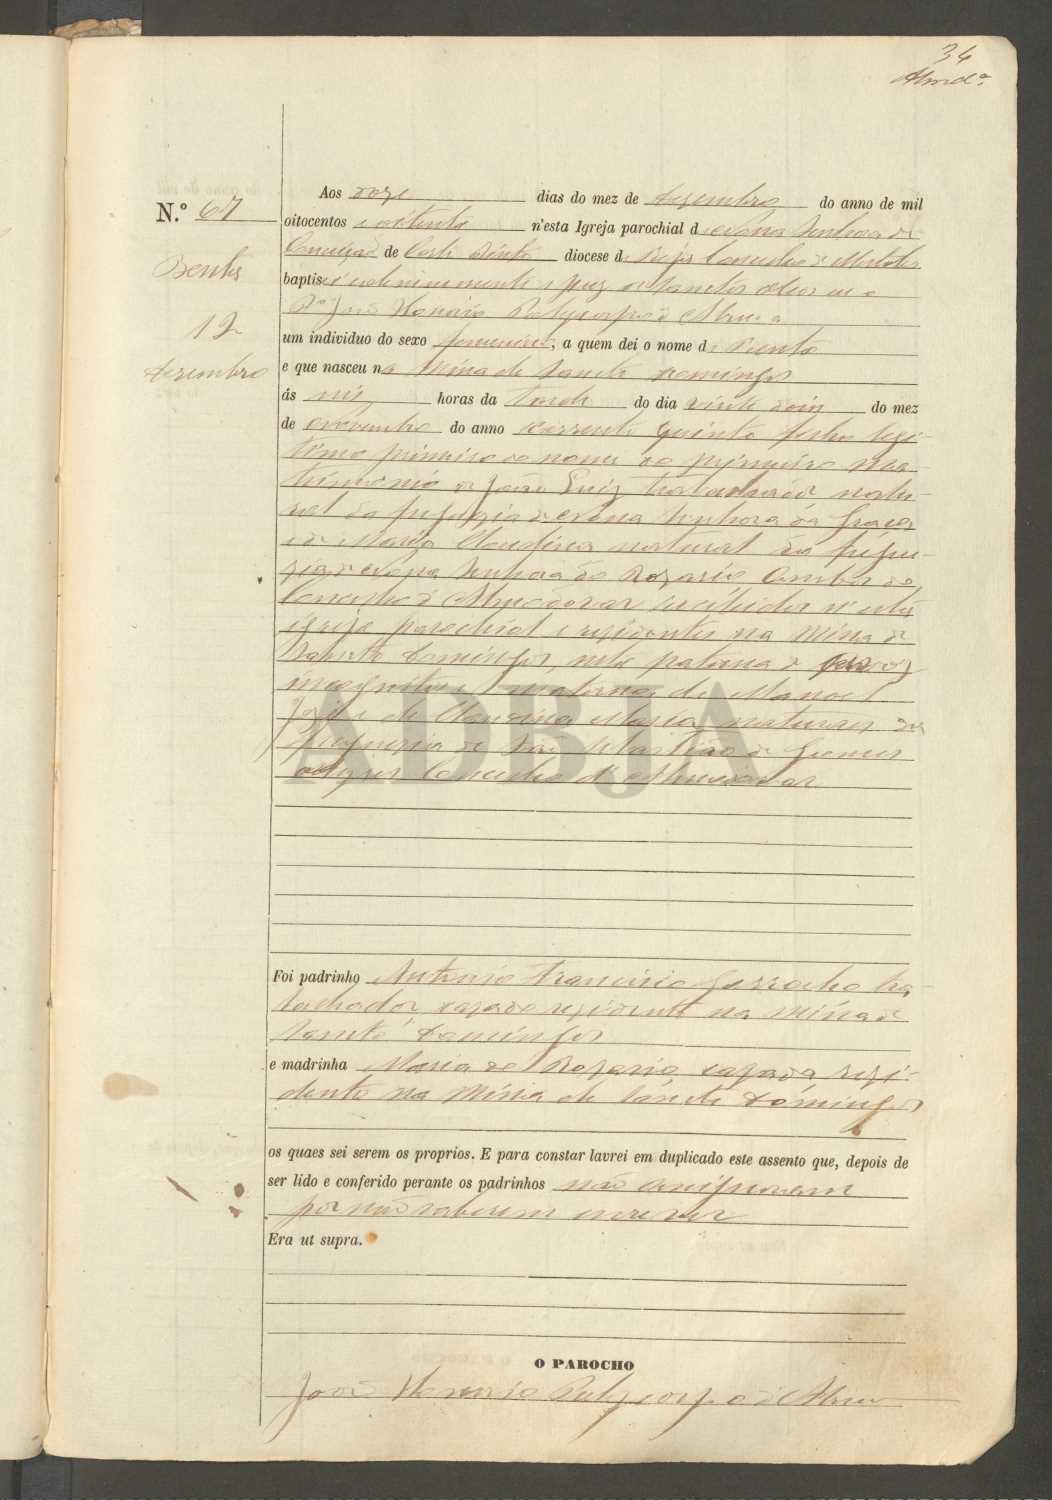 34
Almd.ª
N.º 67
Bento
12
Dezembro
Aos doze dias do mez de Dezembro do anno de mil
oitocentos e oitenta n'esta Igreja parochial de Nossa Senhora da
Conceição de Corte Pinto diocese de Beja Concelho de Mertola
baptisei solemnemente e puz os Santos Oleos eu o
P.e João Honorio Polycarpo d'Abreu a
um individuo do sexo, a quem dei o nome de Bento
e que nasceu na Mina de Sancto Domingos
ás seis horas da tarde do dia vinte dois do mez
de novembro do anno corrente quinto filho legi-
timo primeiro do nome do primeiro ma-
trimonio de João Luiz trabalhador natu-
ral da freguezia de Nossa Senhora da Graça
e de Maria Claudina natural da fregue-
zia de Nossa Senhora do Rozario ambas do
Concelho d'Almodovar recebidos n'esta
igreja parochial e rezidentes na Mina de
Sancto Domingos, neto paterno de avos
incognitos e materno de Manoel
José e de Claudina Maria naturaes da
freguezia de São Sebastião de Gomes
Ayres Concelho d'Almodovar
Foi padrinho Antonio Francisco Garrocho tra-
balhador, cazado rezidente na Mina de
Sancto Domingos
e madrinha Maria do Rozario cazada rezi-
dente na Mina de Sancto Domingos
os quaes sei serem os proprios. E para constar lavrei em duplicado este assento que, depois de
ser lido e conferido perante os padrinhos não assignaram
por não saberem escrever
Era ut supra.
O PAROCHO
João Honorio Polycarpo d'Abreu
ADBJA